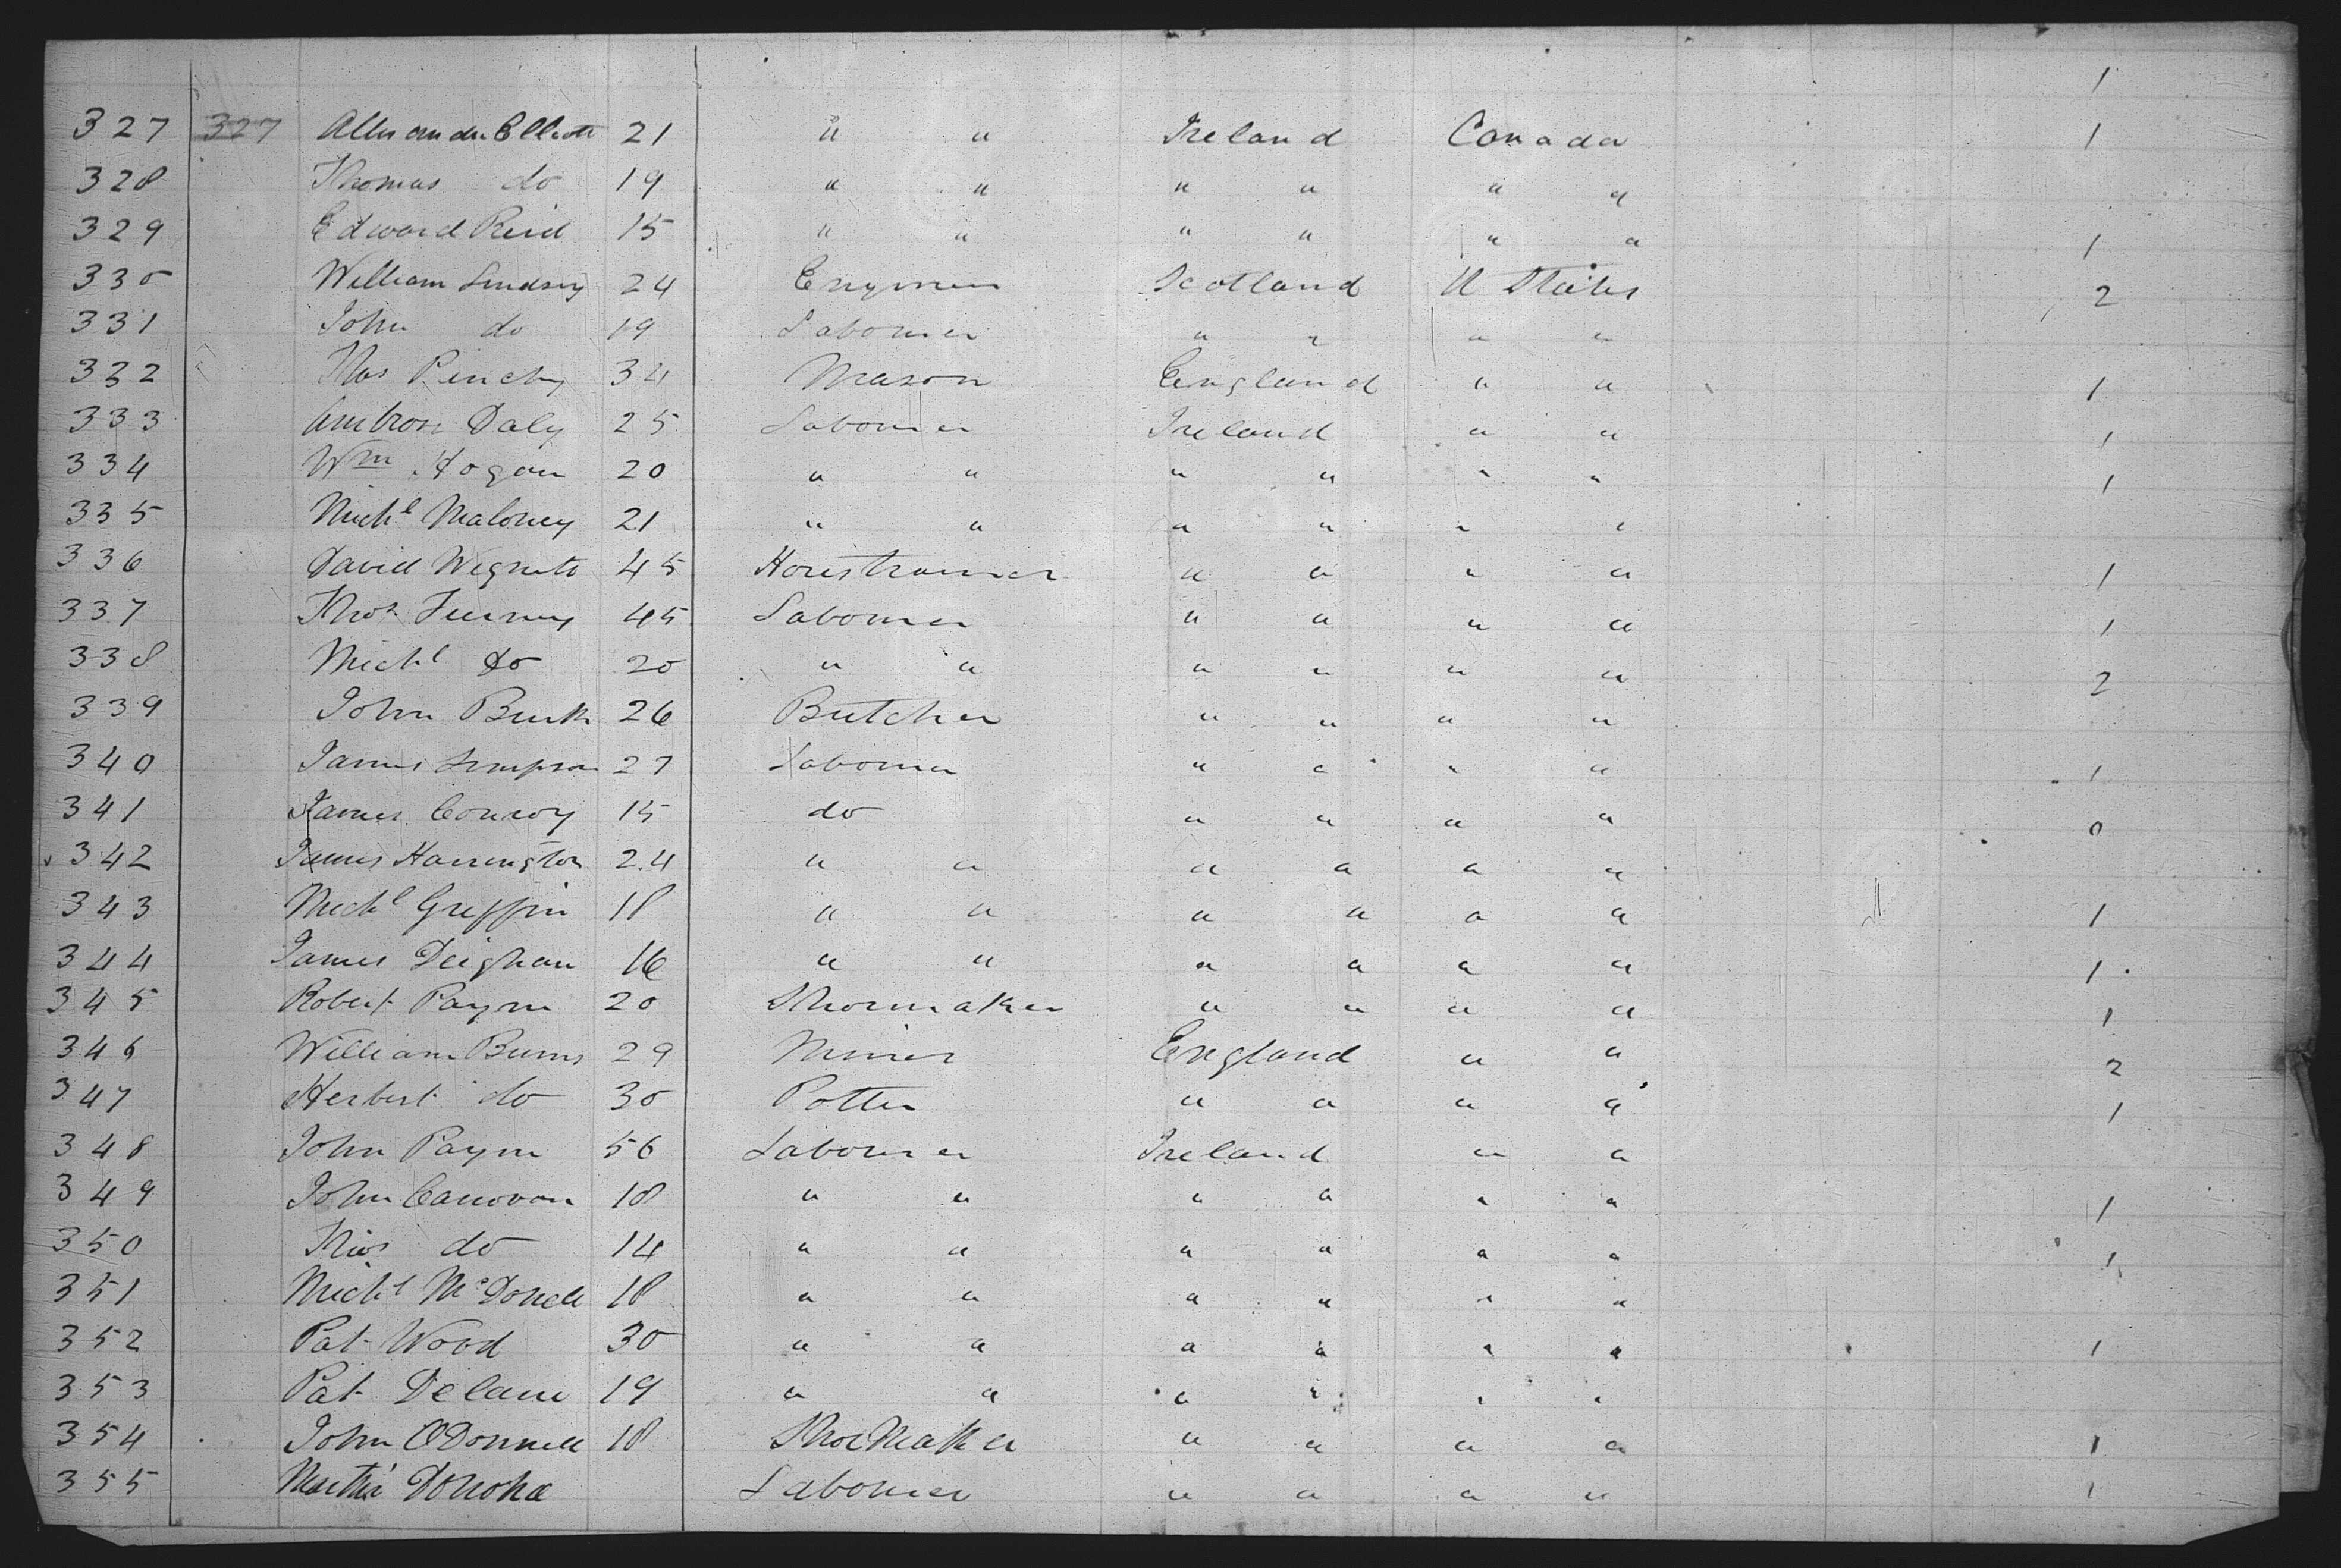 1
327 327 Allexander Elliott 21 " " Ireland Canada 1
328 Thomas do 19 " " " " " "
329 Edward Reid 15 " " " " " " 1
330 William Lindsey 24 Scotland U States 2
331 John do 19 Labourer " " " "
332 Thos 34 Mason England " " 1
333 Ambrose Daly 25 Labourer Ireland " " 1
334 Wm Hogan 20 " " " " " " 1
335 Michl Maloney 21 " " " " " "
336 David 45 " " " " 1
337 Thos 45 Labourer " " " " 1
338 Michl do 20 " " " " " " 2
339 John Burk 26 Butcher " " " "
340 James Simpson 27 Labourer " " " " 1
341 James Conroy 15 do " " " " 0
342 James Harrington 24 " " " " " "
343 Michl Griffin 18 " " " " " " 1
344 James Deighan 16 " " " " " " 1
345 Robert Payne 20 Shoemaker " " " " 1
346 William Burns 29 Miner England " " 2
347 Herbert do 30 Potter " " " " 1
348 John Payne 56 Labourer Ireland " "
349 John Canovan 18 " " " " " " 1
350 Thos do 14 " " " " " " 1
351 Michl McDonell 18 " " " " " "
352 Pat Wood 30 " " " " " " 1
353 Pat 19 " " " " " "
354 John O'Donnell 18 ShoeMaker " " " " 1
355 Martin Donoha Labourer " " " " 1